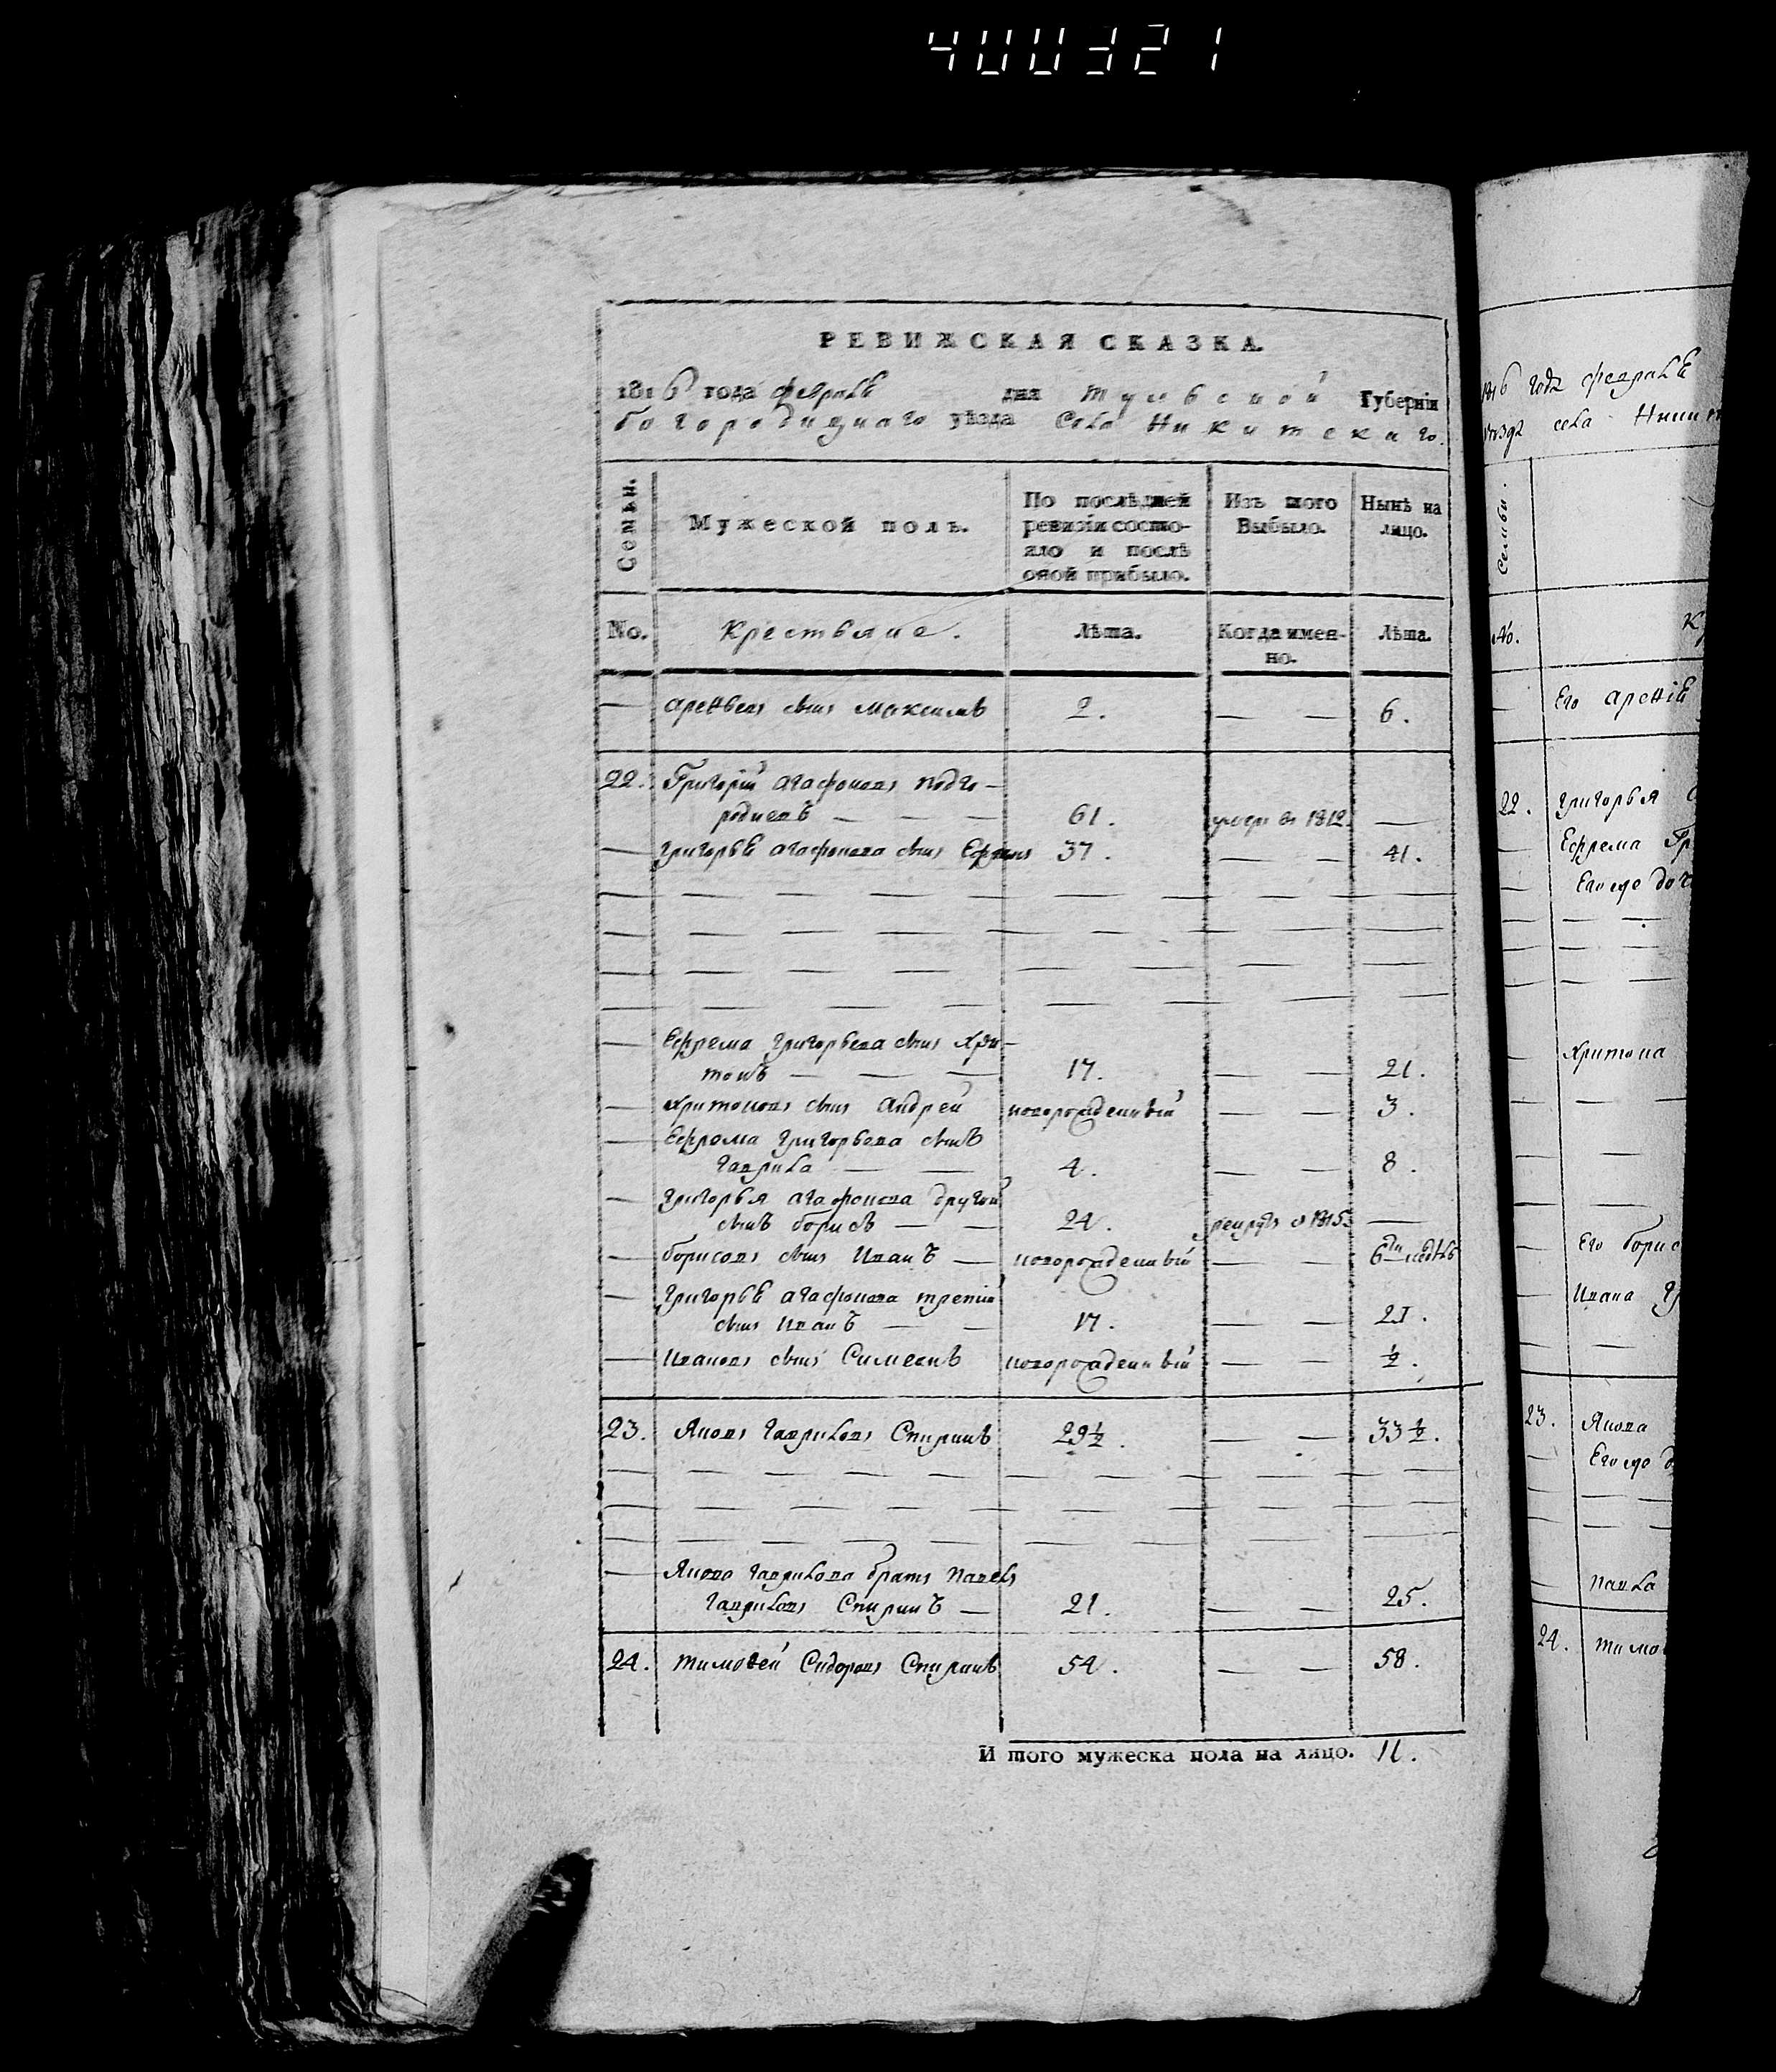 400321
РЕВИЖСКАЯ СКАЗКА.
1816 года февраля дня Тульской Губерніи
богородицкаго уѣзда Села Никитскаго.
Семьи.
Мужеской полъ.
По послѣдней ревизіи состо-
яло и послѣ
оной прибыло.
Изъ того
Выбыло.
Нынѣ на
лицо.
No. Крестьяне. Лѣта. Когда имен-
но. Лѣта.
— арефьевъ сынъ Максимъ 2. — — 6.
22. Григорій агафоновъ подго-
родневъ — — — 61. умеръ въ 1812. —
— григорья агафонова сынъ Ефремъ 37. — — 41.
— Ефрема григорьева сынъ хри-
тонъ — — — 17. — — 21.
— хритоновъ сынъ андрей новорожденный — — 3.
— Ефрема григорьева сынъ
гаврила — — 4. — — 8.
— григорья агафонова другой
сынъ борисъ — — 24. рекрутъ в 1815. —
— борисовъ сынъ Иванъ — новорожденный — — 6ти недѣль
— григорья агафонова третій
сынъ Иванъ — — 17. — — 21.
— Ивановъ сынъ Симеонъ новорожденный — — ½.
23. Яковъ гавриловъ Спиринъ 29½. — — 33½.
— Якова гаврилова братъ павелъ
гавриловъ Спиринъ — 21. — — 25.
24. тимоѳей Сидоровъ Спиринъ 54. — — 58.
И того мужеска пола на лицо. 11.
1816 года февраля
уѣзда села
Семьи.
No.
Его
22. григорья
Ефрема
Его же
хритона
Его
Ивана
23. Якова
Его же
павла
24.